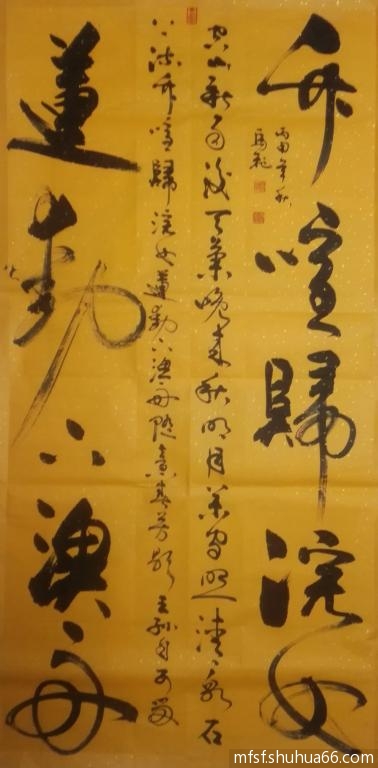 竹喧歸浣女
丙申年秋
空山新雨後天氣晚來秋明月松間照清泉石
上流竹喧歸浣女蓮動下漁舟隨意春芳歇王孫自可留
蓮動下漁舟
mfsf.shuhua66.com